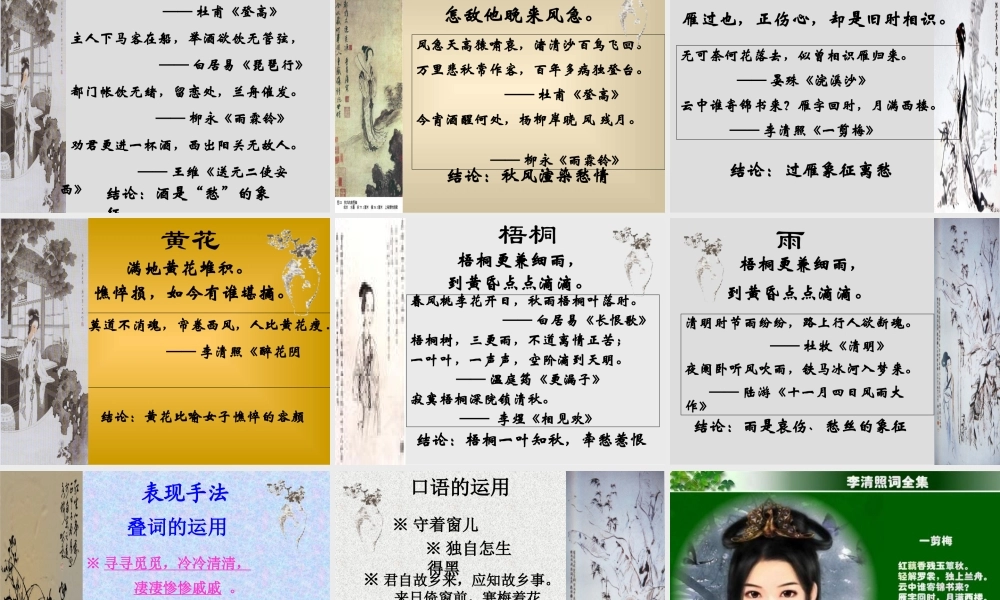 —— 杜甫《登高》
主人下马客在船，举酒欲饮无管弦，
—— 白居易《琵琶行》
都门帐饮无绪，留恋处，兰舟催发。
—— 柳永《雨霖铃》
劝君更进一杯酒，西出阳关无故人。
—— 王维《送元二使安
西》
结论：酒是“愁”的象
怎敌他晚来风急。
风急天高猿啸哀，渚清沙白鸟飞回。
万里悲秋常作客，百年多病独登台。
—— 杜甫《登高》
今宵酒醒何处，杨柳岸晓风残月。
—— 柳永《雨霖铃》
结论：秋风渲染愁情
雁过也，正伤心，却是旧时相识。
无可奈何花落去，似曾相识雁归来。
—— 晏殊《浣溪沙》
云中谁寄锦书来？雁字回时，月满西楼。
—— 李清照《一剪梅》
结论：过雁象征离愁
黄花
满地黄花堆积。
憔悴损，如今有谁堪摘。
莫道不消魂，帘卷西风，人比黄花瘦．
—— 李清照《醉花阴
结论：黄花比喻女子憔悴的容颜
梧桐
梧桐更兼细雨，
到黄昏点点滴滴。
春风桃李花开日，秋雨梧桐叶落时。
—— 白居易《长恨歌》
梧桐树，三更雨，不道离情正苦；
一叶叶，一声声，空阶滴到天明。
—— 温庭筠《更漏子》
寂寞梧桐深院锁清秋。
—— 李煜《相见欢》
结论：梧桐一叶知秋，牵愁惹恨
雨
梧桐更兼细雨，
到黄昏点点滴滴。
清明时节雨纷纷，路上行人欲断魂。
—— 杜牧《清明》
夜阑卧听风吹雨，铁马冰河入梦来。
—— 陆游《十一月四日风雨大
作》
结论：雨是哀伤、愁丝的象征
表现手法
叠词的运用
※ 寻寻觅觅，冷冷清清，
凄凄惨惨戚戚 。
口语的运用
※ 守着窗儿
※ 独自怎生
得黑
※ 君自故乡来，应知故乡事。
来日倚窗前，寒梅着花
李清照词全集
一剪梅
红藕香残玉簟秋。
轻解罗裳，独上兰舟。
云中谁寄锦书来？
雁字回时，月满西楼。